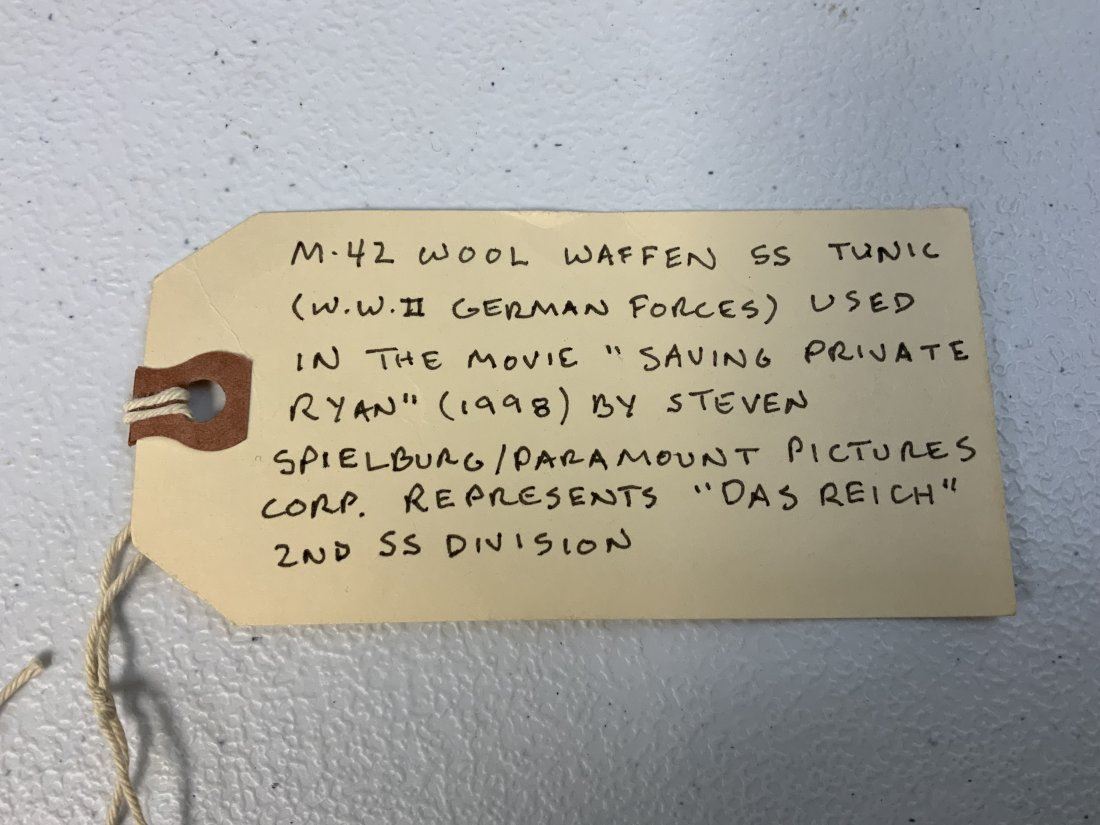 M-42 WOOL WAFFEN SS TUNIC
(W.W.II GERMAN FORCES) USED
IN THE MOVIE "SAVING PRIVATE
RYAN" (1998) BY STEVEN
SPIELBURG/PARAMOUNT PICTURES
CORP. REPRESENTS "DAS REICH"
2ND SS DIVISION